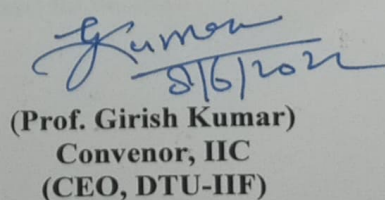 GKumar
8/6/2022
(Prof. Girish Kumar)
Convenor, IIC
(CEO, DTU-IIF)